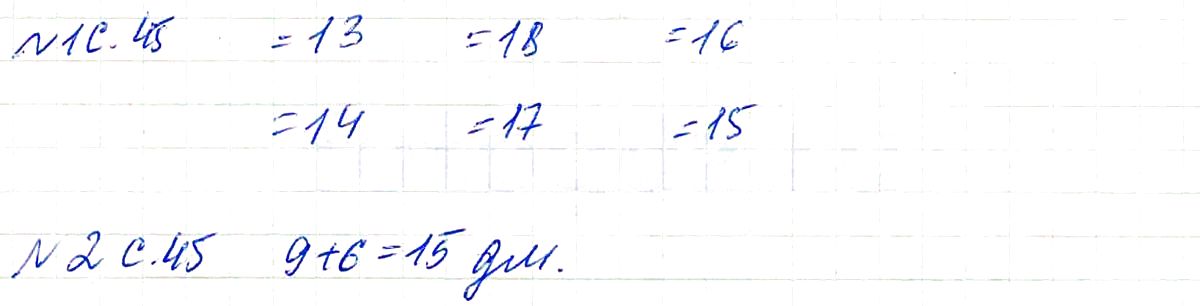 №1 с.45 =13 =18 =16
=14 =17 =15
№2 с.45 9+6=15 дм.